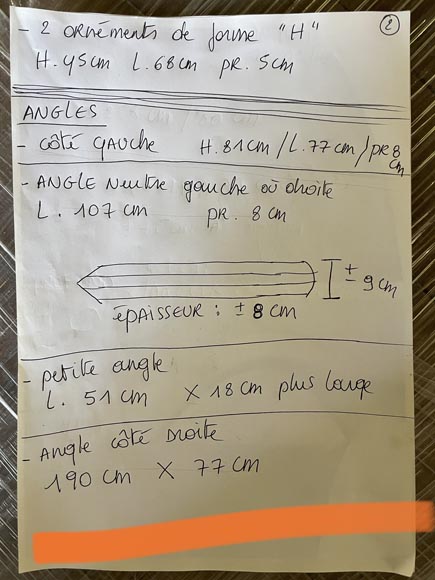 - 2 ORNÉMENTS de forme "H" ②
H. 45cm L. 68cm pr. 5cm
ANGLES
- Côté GAUCHE H. 81cm / L. 77cm / pr 8 cm
- ANGLE Neutre gauche où droite
L. 107 cm pr. 8 cm
± 9 cm
ÉPAISSEUR : ± 8 cm
- petite angle
L. 51 cm X 18 cm plus large
- Angle côté Droite
190 cm X 77 cm